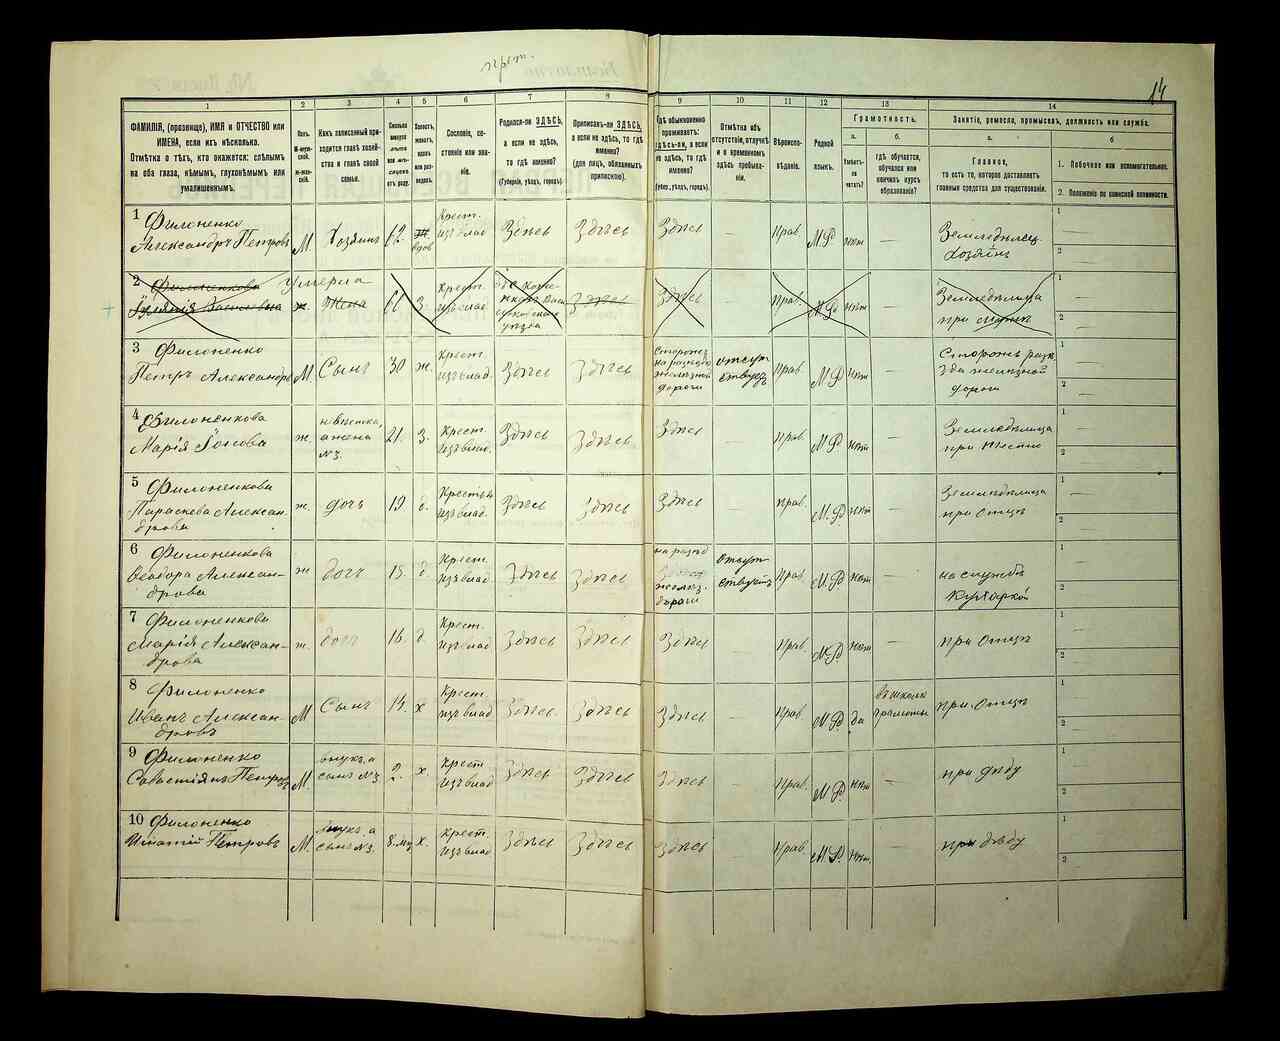 14
1
2
3
4
5
6
7
8
9
10
11
12
13
14
ФАМИЛІЯ, (прозвище), ИМЯ и ОТЧЕСТВО или
ИМЕНА, если ихъ нѣсколько.
Отмѣтка о тѣхъ, кто окажется: слѣпымъ
на оба глаза, нѣмымъ, глухонѣмымъ или
умалишеннымъ.
Полъ.
М-мужской.
Ж-женскій.
Какъ записанный приходится главѣ хозяйства и главѣ своей
семьи.
Сколько
Холостъ,
женатъ,
вдовъ
или разведенъ.
Сословіе, состояніе или званіе.
Родился-ли ЗДѢСЬ,
а если не здѣсь,
то гдѣ именно?
(Губернія, уѣздъ, городъ).
Приписанъ-ли ЗДѢСЬ,
а если не здѣсь, то гдѣ
именно?
(для лицъ, обязанныхъ
припискою).
Гдѣ обыкновенно
проживаетъ:
здѣсь-ли, а если
не здѣсь, то гдѣ
именно?
(Губер., уѣздъ, городъ).
Отмѣтка объ
отсутствіи, отлучкѣ
и о временномъ
здѣсь пребываніи.
Вѣроисповѣданіе.
Родной
языкъ.
Грамотность.
а.
Умѣетъ-ли
читать?
б.
гдѣ обучается,
обучался или
кончилъ курсъ
образованія?
Занятіе, ремесло, промыселъ, должность или служба.
а.
Главное,
то есть то, которое доставляетъ
главныя средства для существованія.
б
1. Побочное или вспомогательное.
2. Положеніе по воинской повинности.
1 Филоненко
Александръ Петровъ М. Хозяинъ 62 вдов Крест. изъ влад Здѣсь Здѣсь Здѣсь — Прав. М.Р. нѣт — Земледѣлец. хозяинъ
2 Филоненкова Умерла
Василіевна ж. Жена 61 З. Крест. изъ влад. Здѣсь Здѣсь Прав. М.Р. нѣт Земледѣлица при мужѣ
3 Филоненко
Петръ Александр М. Сынъ 30 ж. Крест. изъ влад. Здѣсь Здѣсь Сторожъ на разъѣздѣ желѣзной дороги отсутствует Прав. М.Р. нѣт — Сторожъ разъѣзда желѣзной дороги
4 Филоненкова
Марія ж. невѣстка, а жена №3. 21. З. Крест. изъ влад. Здѣсь Здѣсь Здѣсь — Прав. М.Р. нѣт — Земледѣлица при
5 Филоненкова
Параскева Александрова ж. дочь 19 д. Крестьян изъ влад. Здѣсь Здѣсь Здѣсь — Прав. М.Р. нѣт — Земледѣлица при Отцѣ
6 Филоненкова
Ѳеодора Александрова ж дочь д Крест. изъ влад Здѣсь Здѣсь на разъѣд желѣз. дороги Отсутствуетъ Прав. М.Р. нѣт — на службѣ Кухаркой
7 Филоненкова
Марія Александрова ж. дочь 16 д. Крест. изъ влад Здѣсь Здѣсь Здѣсь — Прав. М.Р. нѣт — при Отцѣ
8 Филоненко
Иванъ Александровъ М Сынъ 14. х Крест. изъ влад Здѣсь. Здѣсь Здѣсь — Прав М.Р. да въ школѣ грамоты при Отцѣ
9 Филоненко
Савастіянъ Петровъ М. внукъ, а сынъ №3 2. х. Крест изъ влад Здѣсь Здѣсь Здѣсь — Прав. М.Р. нѣт — при дѣду
10 Филоненко
Игнатій Петровъ М. внукъ, а сынъ №3. 8. мц х. Крест. изъ влад Здѣсь Здѣсь Здѣсь — Прав. М.Р. нѣт. — при дѣду